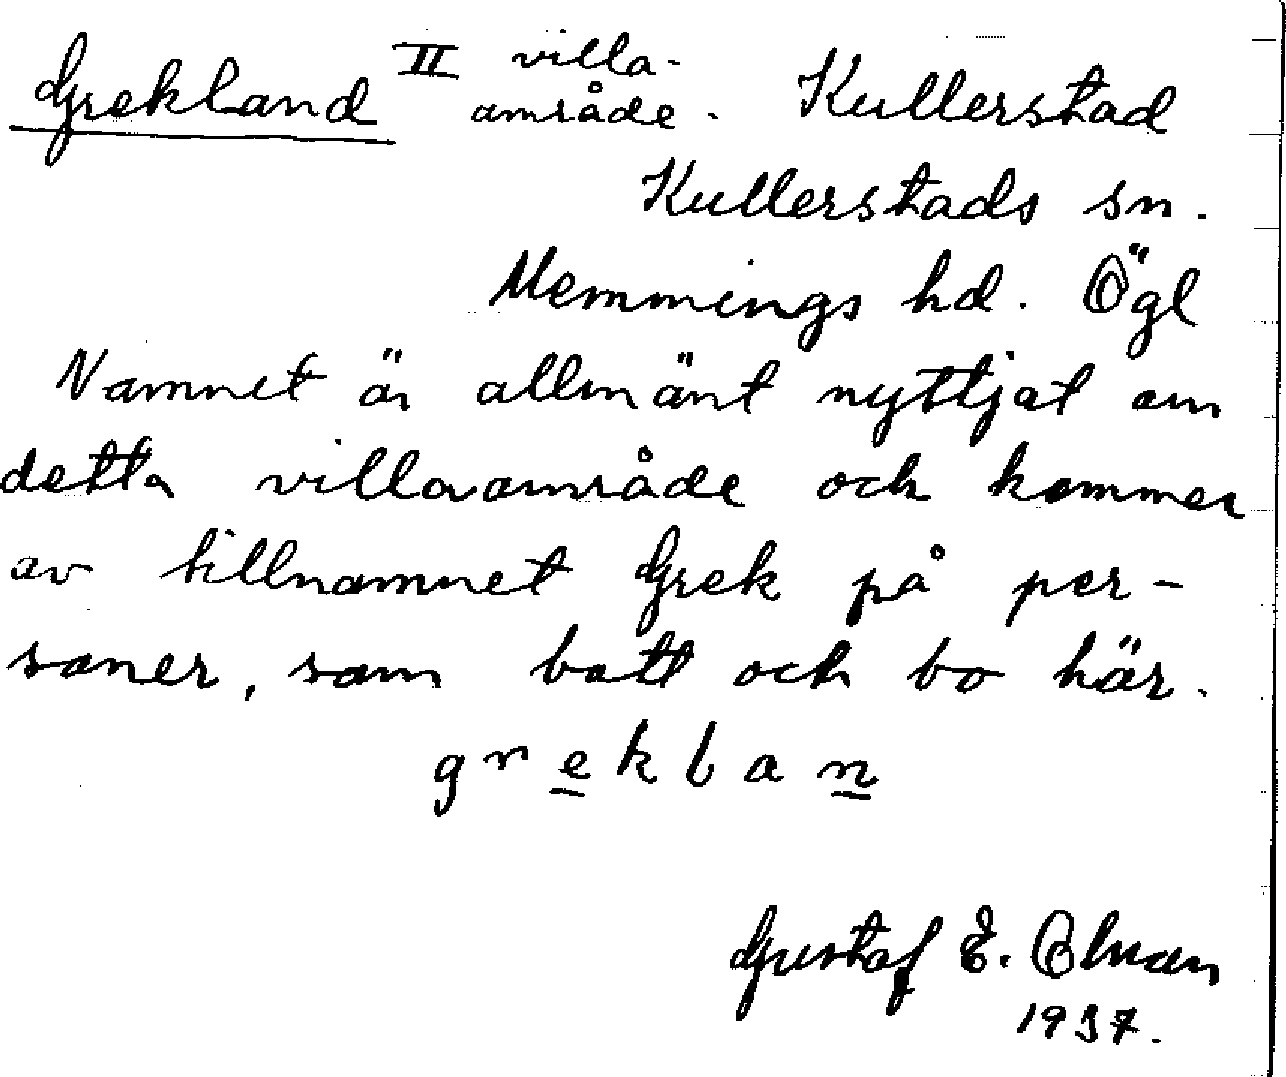 Grekland II villa-
område. Kullerstad
Kullerstads sn.
Memmings hd. Ögl
Namnet är allmänt nyttjat om
detta villaområde och kommer
av tillnamnet Grek på per-
soner, som bott och bo här.
greklan
Gustaf E.
1937.